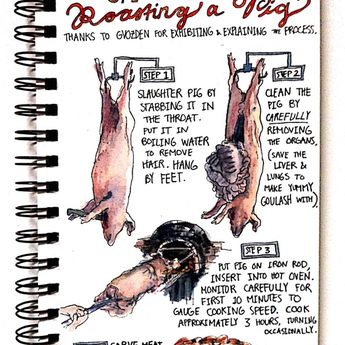 Roasting a Pig
THANKS TO GVOZDEN FOR EXHIBITING & EXPLAINING THE PROCESS.
STEP 1
SLAUGHTER PIG BY
STABBING IT IN
THE THROAT.
PUT IT IN
BOILING WATER
TO REMOVE
HAIR. HANG
BY FEET.
STEP 2
CLEAN THE
PIG BY
CAREFULLY
REMOVING
THE ORGANS.
(SAVE THE
LIVER &
LUNGS TO
MAKE YUMMY
GOULASH WITH).
STEP 3
PUT PIG ON IRON ROD,
INSERT INTO HOT OVEN.
MONITOR CAREFULLY FOR
FIRST 10 MINUTES TO
GAUGE COOKING SPEED. COOK
APPROXIMATELY 3 HOURS, TURNING
OCCASIONALLY.
CARVE MEAT